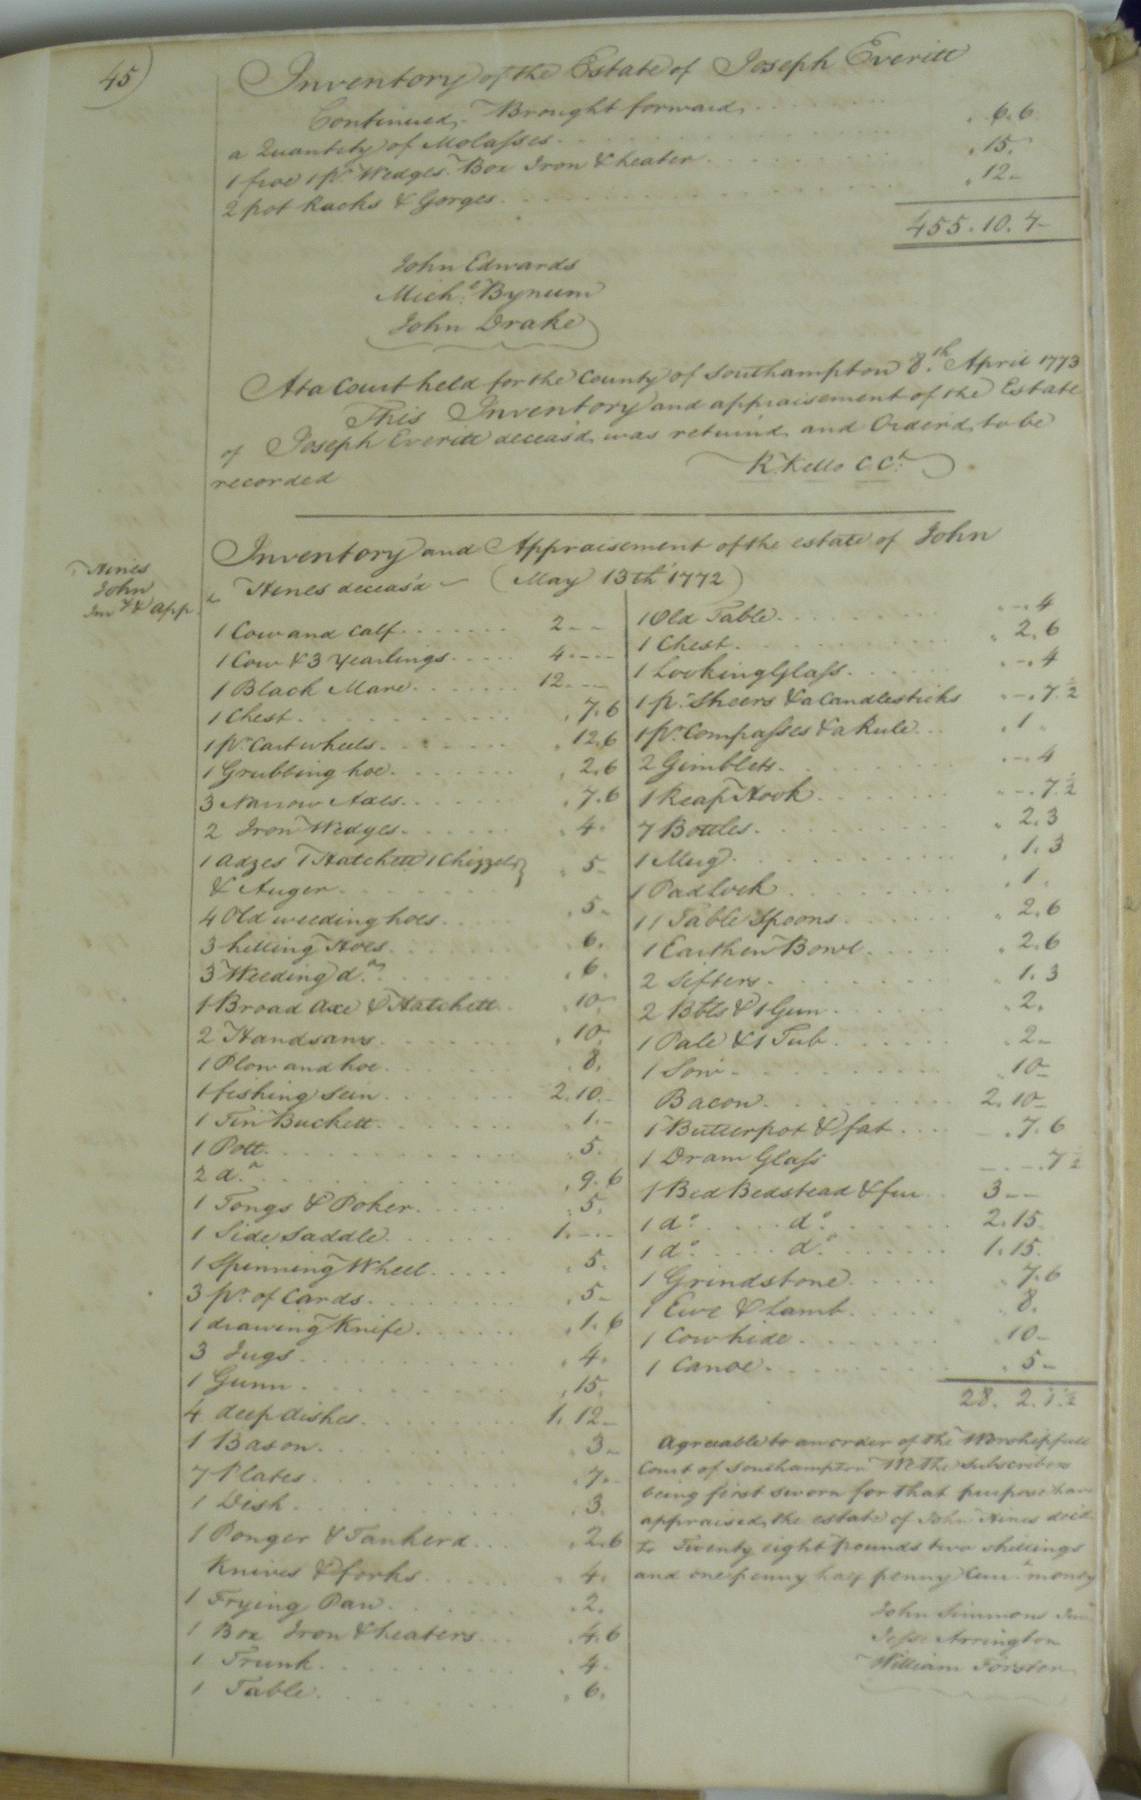 45)
Inventory of the Estate of Joseph Everitt
Continued, Brought forward
a Quantity of Molasses . 6. 6
1 froe 1 pr. Wedges Box Iron & heater . 15.
2 pot Racks & Gorges . 12 -
455. 10. 7 -
John Edwards
Michl. Bynum
John Drake
At a Court held for the County of Southampton 8.th April 1773
This Inventory and appraisement of the Estate
of Joseph Everitt deceas'd was return'd and Order'd to be
recorded
R. Kello C. Cr.
Hines
John
Inv.y & app.
Inventory and Appraisement of the estate of John
Hines deceas'd - (May 13th 1772)
1 Cow and Calf 2 - -
1 Cow & 3 Yearlings 4 - -
1 Black Mare 12 - -
1 Chest . 7. 6
1 pr. Cart wheels . 12. 6
1 Grubbing hoe . 2. 6
3 Narrow Axes . 7. 6
2 Iron Wedges . 4.
1 Adzes 1 Hatchett 1 Chizzel }
& Auger . 5 -
4 Old weeding hoes . 5 -
3 hilling Hoes . 6.
3 Weeding do. . 6.
1 Broad Axe & Hatchett . 10 -
2 Handsaws . 10.
1 Plow and hoe . 8.
1 fishing sein 2. 10. -
1 Tin Buckett . 1. -
1 Pott . 5.
2 do. . 9. 6
1 Tongs & Poker . 5.
1 Side Saddle 1. - -
1 Spinning Wheel . 5.
3 pr. of Cards . 5 -
1 drawing Knife . 1. 6
3 Jugs . 4.
1 Gunn . 15.
4 deep dishes 1. 12 -
1 Bason . 3 -
7 Plates . 7. -
1 Dish . 3.
1 Ponger & Tankerd . 2. 6
Knives & forks . 4.
1 Frying Pan . 2.
1 Box Iron & heaters . 4. 6
1 Trunk . 4.
1 Table . 6.
1 Old Table . - . 4
1 Chest . 2. 6
1 Looking Glass . - . 4
1 pr. Sheers & a Candlesticks . - . 7. ½
1 pr. Compasses & a Rule . 1 .
2 Gimblets . - . 4
1 Reap Hook . - . 7. ½
7 Bottles . 2. 3
1 Mug . 1. 3
1 Padlock . 1 .
11 Table Spoons . 2. 6
1 Earthen Bowl . 2. 6
2 Sifters . 1. 3
2 Bbls & 1 Gum . 2.
1 Pale & 1 Tub . 2 -
1 Sow . 10 -
Bacon 2. 10 -
1 Butterpot & fat - . 7. 6
1 Dram Glass - . - . 7 ½
1 Bed Bedstead & fur 3 - -
1 do. do. 2. 15.
1 do. do. 1. 15.
1 Grindstone . 7. 6
1 Ewe & Lamb . 8.
1 Cow hide . 10 -
1 Canoe . 5 -
28. 2. 1. ½
Agreeable to an order of the Worshipfull
Court of Southampton We the Subscribers
being first sworn for that purpose have
appraised the estate of John Hines decd.
to Twenty eight pounds two shillings
and one penny half penny Curr. money
John Simmons Junr.
Jesse Arrington
William Forster